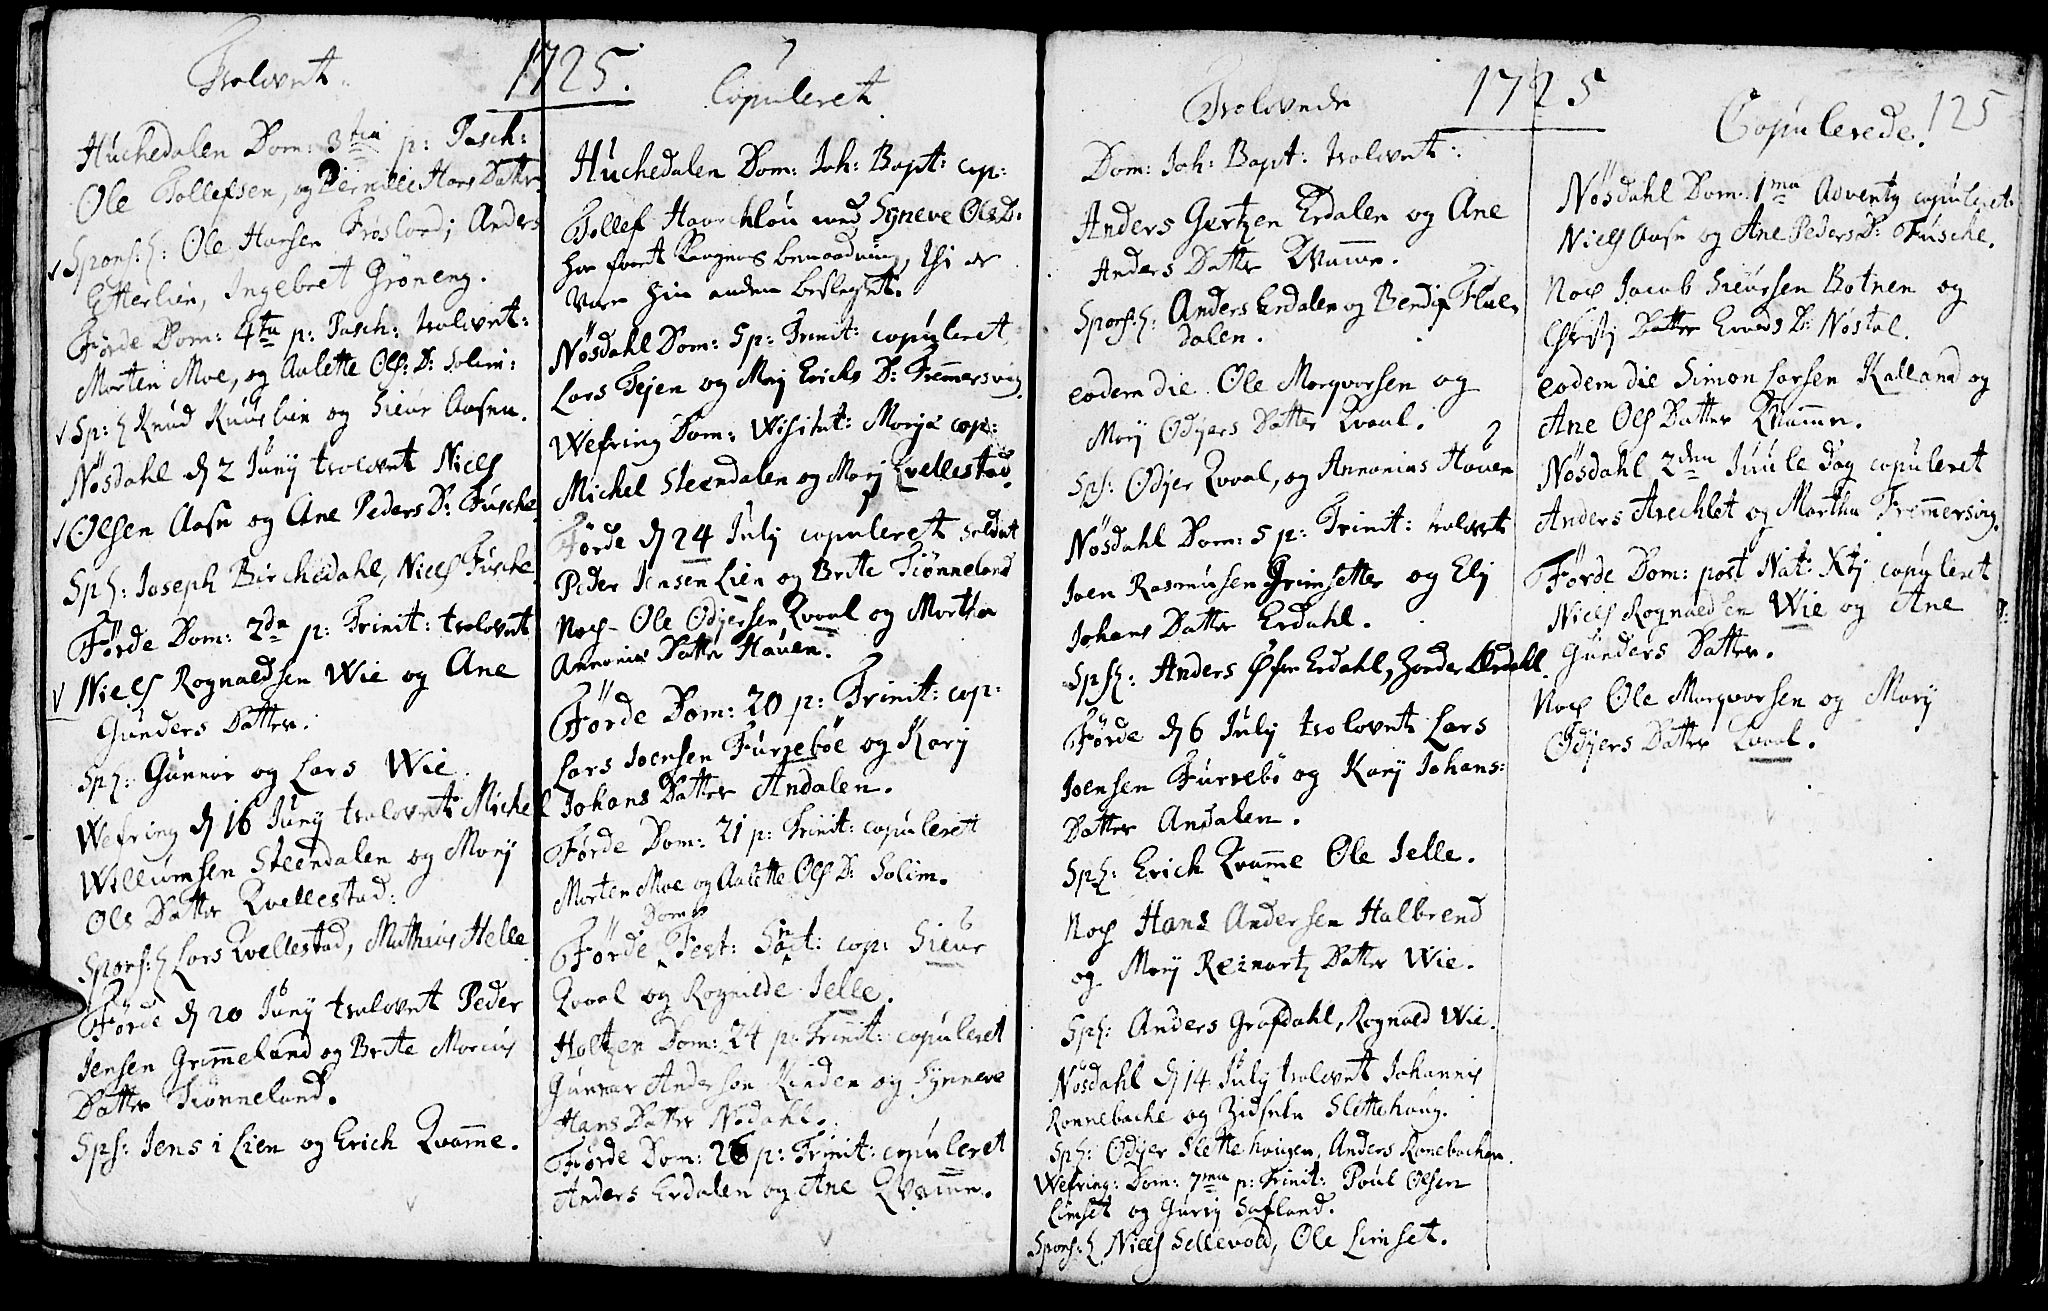 Trolovet.
1725.
Huchedalen Dom: 3tia p: Pasch:
Ole Tollefsen, og Pernille Hans Datter
Spons: Ole Hansen Frøsland; Anders
Etterlien, Ingebret Grøneng.
Førde Dom: 4ta p: Pasch: trolovet:
Morten Moe, og Aalette Ols: D: Solim:
Sp: Knud Kuuslien og Sieur Aasen.
Nøsdahl d 2 Junij trolovet Niels
Olsen Aase og Ane Peders D: Fusche
Sp: Joseph Birchedahl, Niels Fusche
Førde Dom: 2da p: Trinit: trolovet
Niels Rognaldsen Wie og Ane
Gunders Datter.
Sp: Gunnar og Lars Wie.
Wefring d 16 Junij trolovet Michel
Willumsen Steendalen og Marj
Ols Datter Qvellestad:
Spons: Lars Qvellestad, Mathias Helle
Førde d 20 Junij trolovet Peder
Jensen Grimmeland og Brite Marius
Datter Tiønneland.
Sps: Jens i Lien og Erich Qvamme.
Copuleret
Huchedalen Dom: Joh: Bapt: cop:
Tollef Haarchlou med Syneve Ols D:
har faaet Kongens benaadning, thi de
vare hin anden beslegtet.
Nøsdahl Dom: 5 p: Trinit: copuleret
Lars Teien og Marj Erichs D: Fremmersvig.
Wefring Dom: Visitat: Mariæ cop:
Michel Steendalen og Marj Qvellestad.
Førde d 24 Julij copuleret Soldat
Peder Jensen Lien og Brite Tiønneland
Nock Ole Odjersen Qvaal og Marthe
Annanias Datter Hauen.
Førde Dom: 20 p: Trinit: cop:
Lars Joensen Furrebøe og Karj
Johans Datter Andalen.
Førde Dom: 21 p: Trinit: copuleret
Morten Moe og Aalette Ols D: Solim.
Dom
Førde Fest: Sanct: cop: Sieur
Qvaal og Rognilde Jelle.
Holtzen Dom: 24 p: Trinit: copuleret
Gunnar Andersen Kinden og Synneve
Hans Datter Nødahl.
Førde Dom: 26 p: Trinit: copuleret
Anders Erdalen og Ane Qvamme.
Trolovede
1725
Dom: Joh: Bapt: trolovet:
Anders Gertzen Erdalen og Ane
Anders Datter Qvamme.
Spons: Anders Erdalen og Bendix Flue
dalen.
eodem die Ole Marqvorsen og
Marj Odjers Datter Qvaal.
Sps: Odjer Qvaal, og Annanias Hauen
Nøsdahl Dom: 5 p: Trinit: trolovet
Joen Rasmusen Grimsetter og Elj
Johans Datter Erdahl.
Sps: Anders Øfre Erdahl, Erdahl.
Førde d 6 Julij trolovet Lars
Joensen Furrebø og Karj Johans:
Datter Andalen.
Sp: Erich Qvamme Ole Jelle.
Nock Hans Andersen Halbrend
og Marj Reinartz Datter Wie.
Sp: Anders Grafdahl, Rognald Wie.
Nøsdahl d 14 Julij trolovet Johannis
Ronnebache og Zidsele Slettehaug.
Sp: Odjer Slettehaugen, Anders Ronebachen.
Wefring: Dom: 7ma p: Trinit: Poul Olsen
Limset og Gurrj Safland.
Spons: Niels Sellevold, Ole Limset.
Copulerede.
125
Nøsdahl Dom: 1ma Adventy copuleret:
Niels Aase og Ane Peders D: Fusche.
Nock Jacob Sieursen Botnen og
Christj Datter D: Nøstal.
eodem die Simon Larsen Kalland og
Ane Ols Datter Qvamme.
Nøsdahl 2den Juule dag copuleret
Anders Arechlet og Marthe Fremmersvig.
Førde Dom: post Nat: Xtj copuleret
Niels Rognaldsen Wie og Ane
Gunders Datter.
Nock Ole Marqvorsen og Marj
Odjers Datter Qvaal.